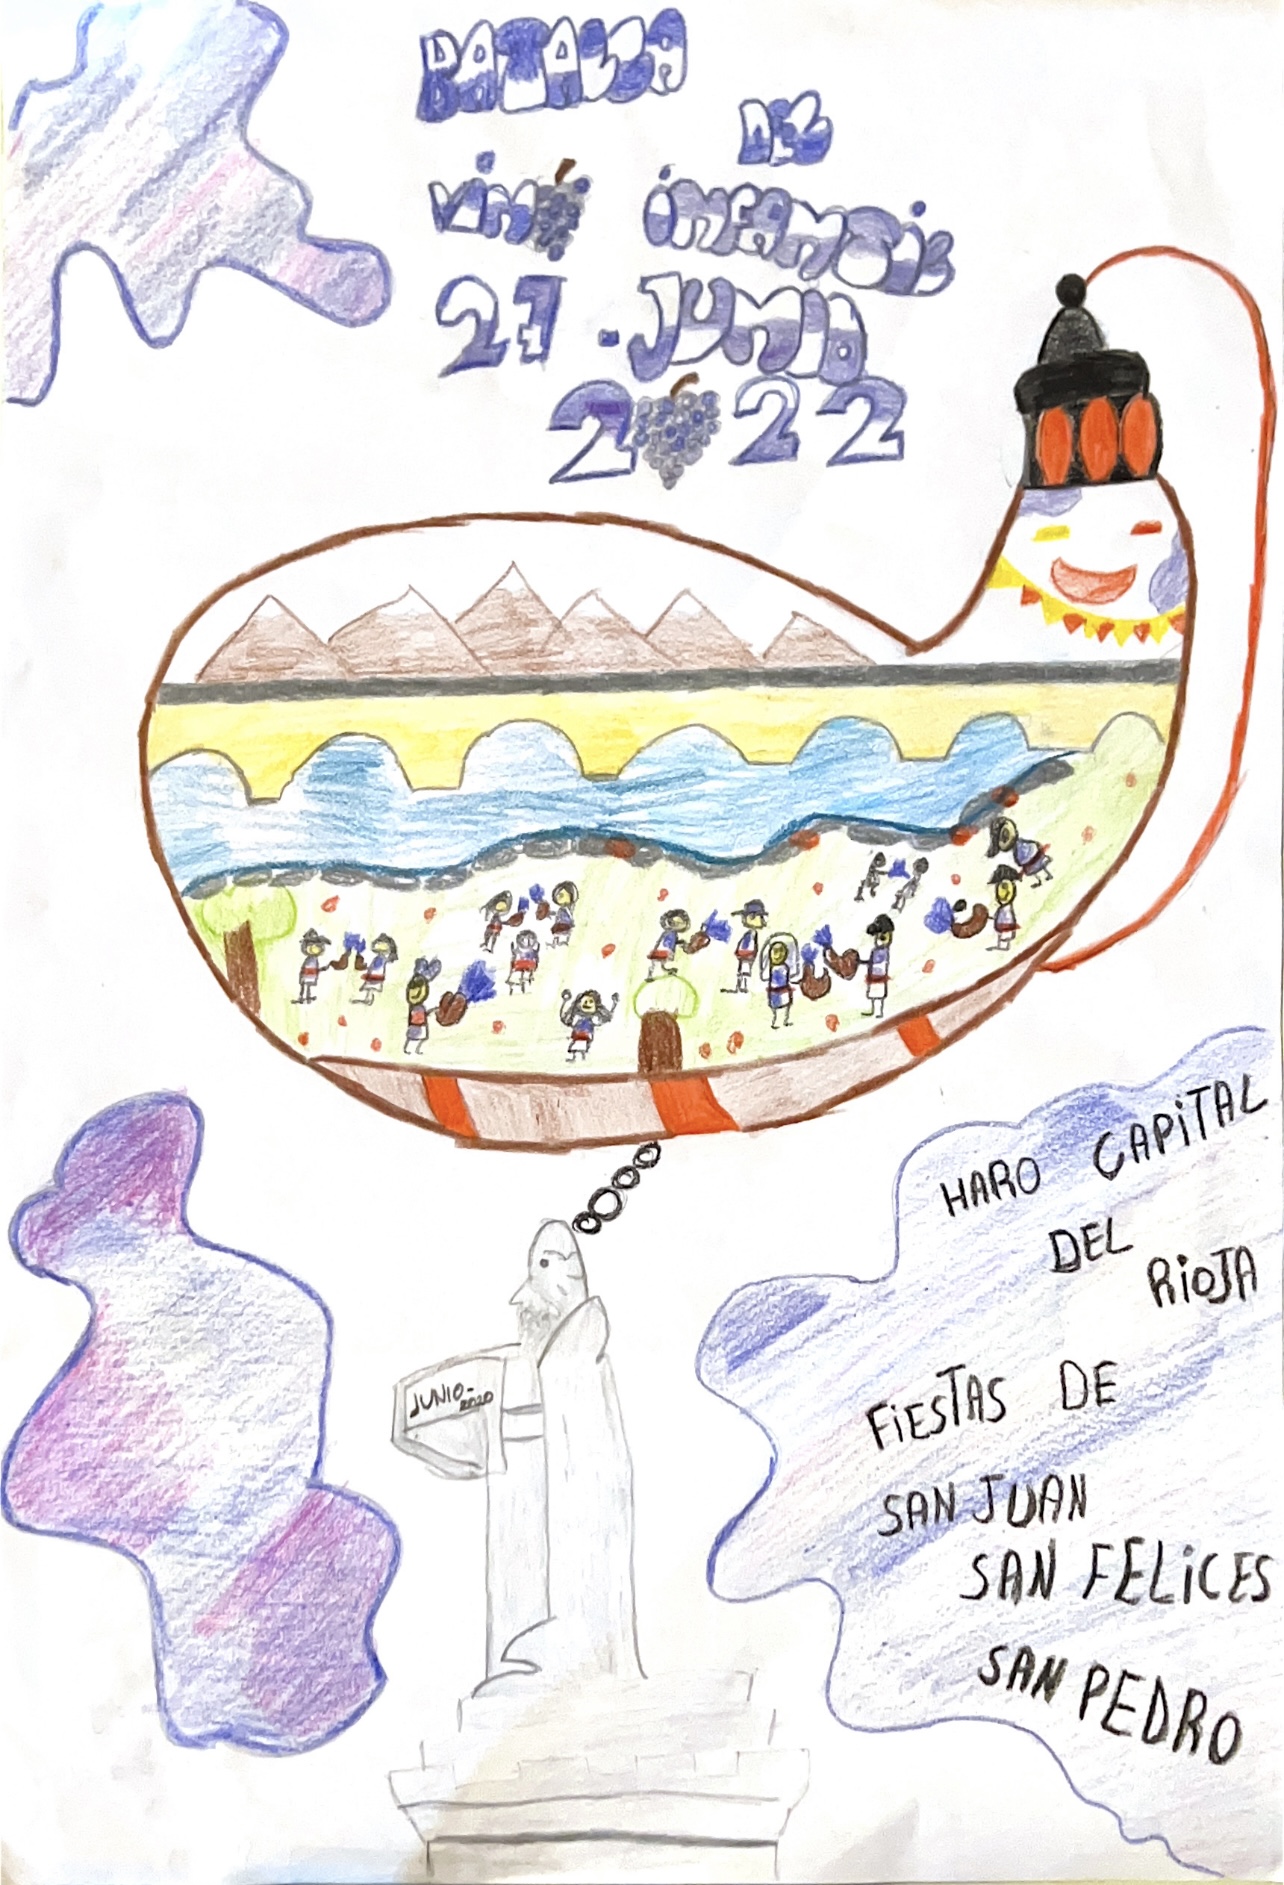 BATALLA
DEL
ViNO iNFANTiL
27 · JUNIO
2022
HARO CAPiTAL
DEL
RiOJA
JUNIO-
2020
FiESTAS DE
SAN JUAN
SAN FELiCES
SAN PEDRO